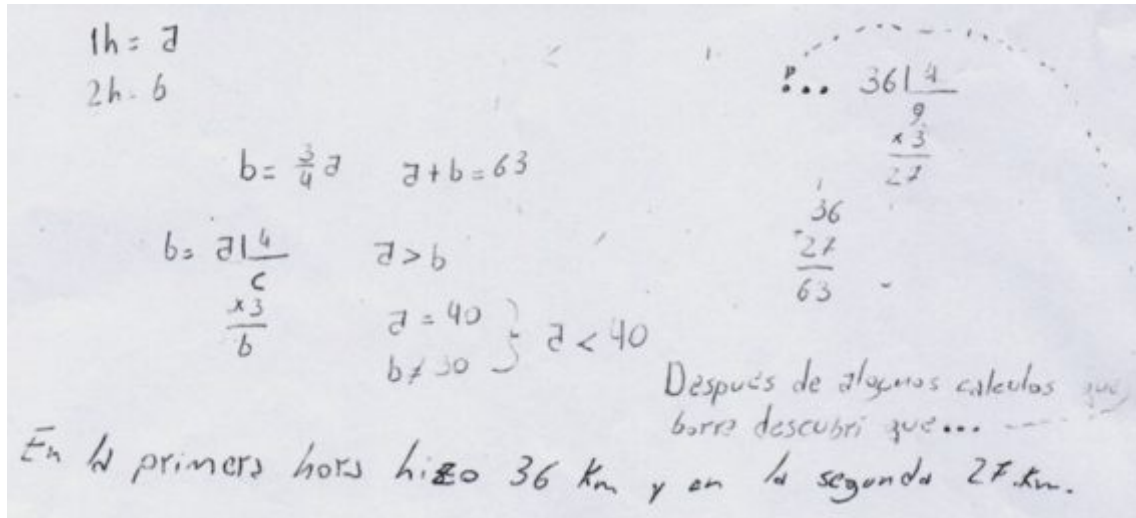 1h = a
2h = b
b = 3/4 a   a + b = 63
b = a | 4   a > b
c
x 3
b
a = 40 } a < 40
b ≠ 30
?... 36 | 4
9
x 3
27
36
27
63
Después de algunos calculos que
borre descubri que...
En la primera hora hizo 36 Km y en la segunda 27 Km.